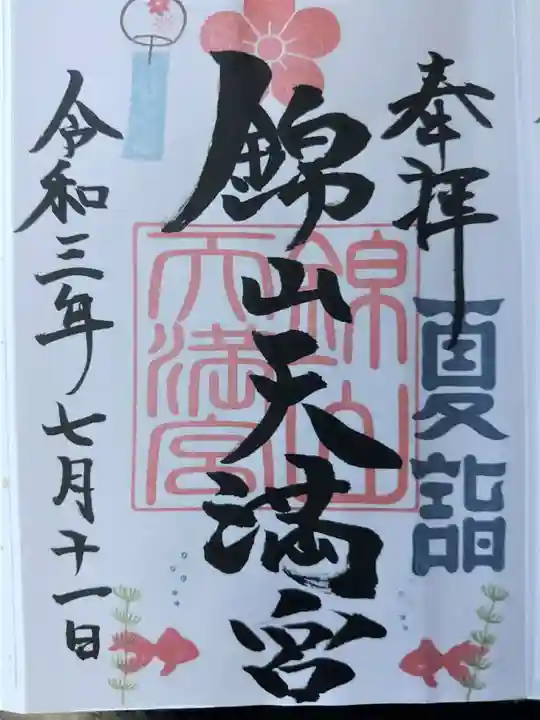 奉拝
夏詣
錦山天満宮
錦山
天満宮
令和三年七月十一日